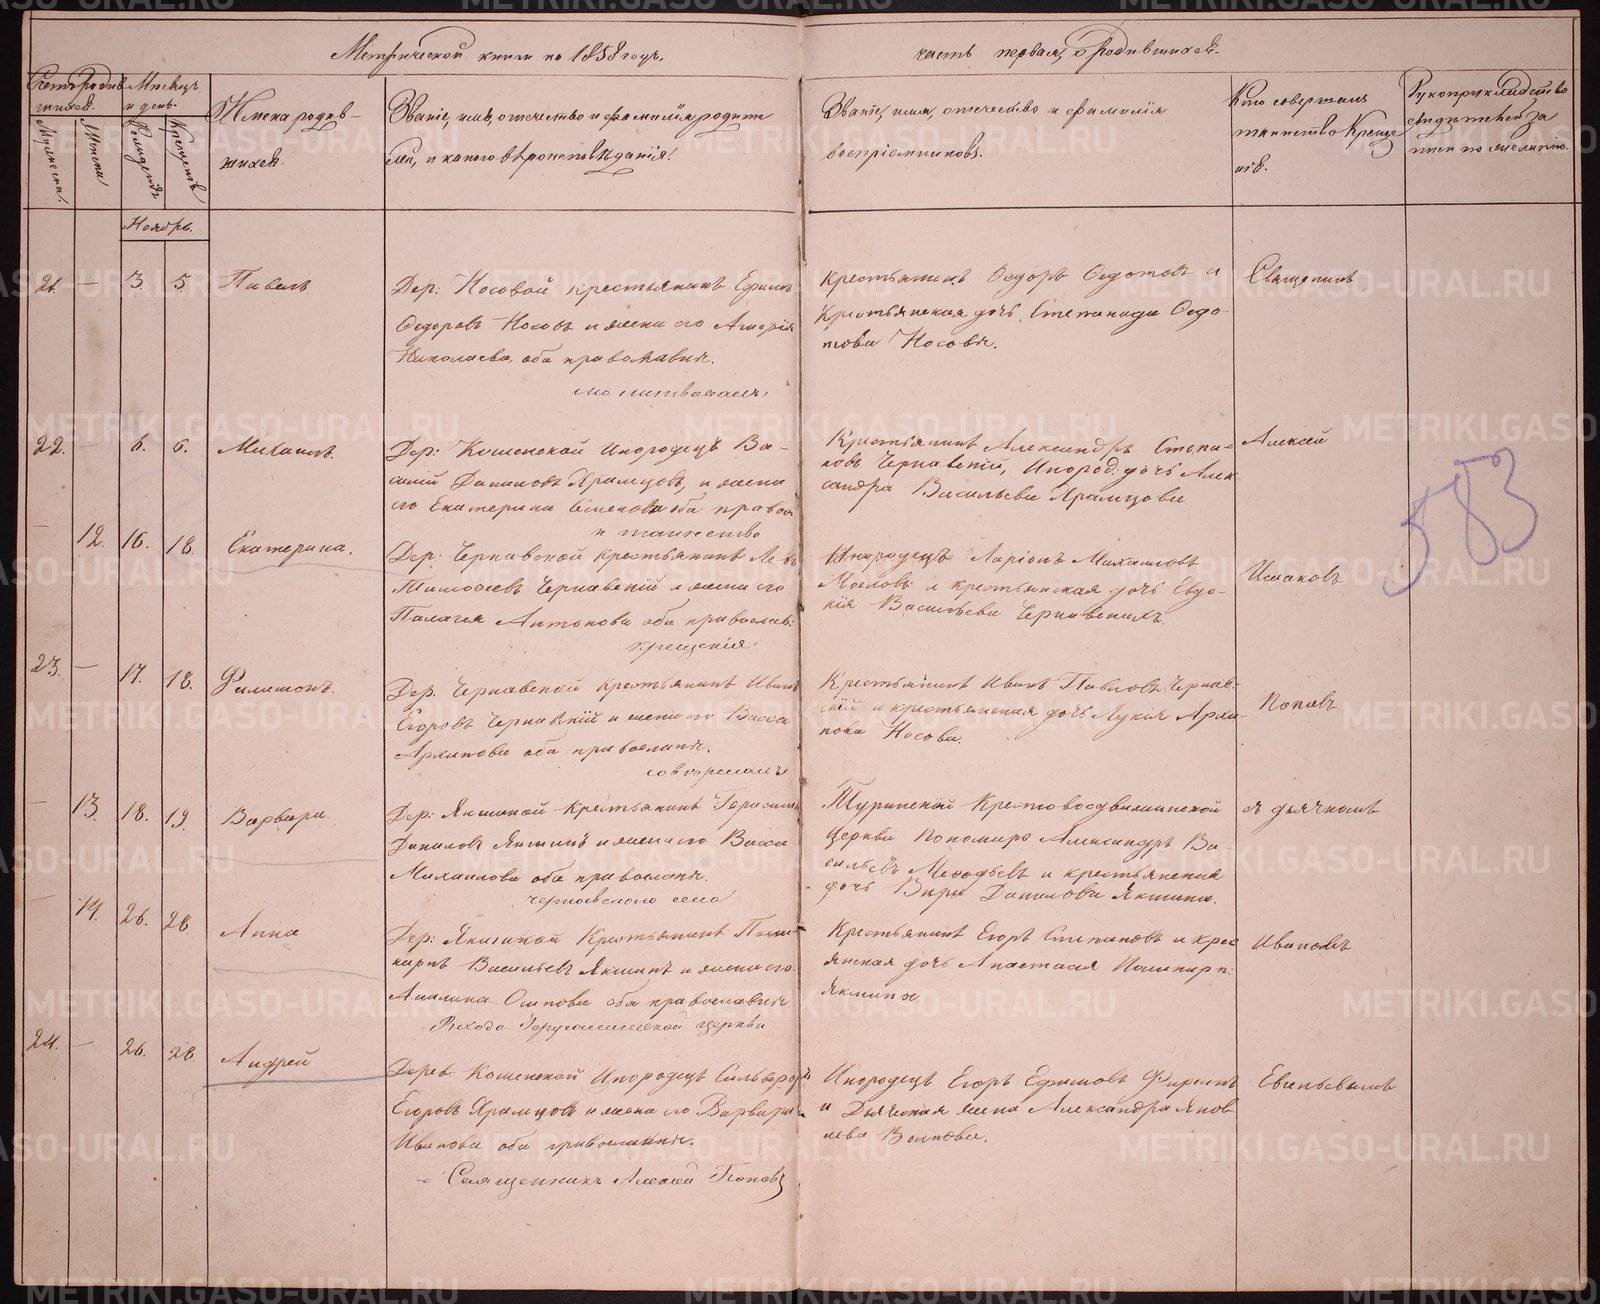 Метрической книги на 1858 годъ,
часть первая, о родившихся.
Счетъ родив
шихся.
Мѣсяцъ
и день.
Мужеска.
Женска
Рожденія
Крещенія
Имена родив-
шихся.
Званіе, имя, отчество и фамилія родите
лей, и какого вѣроисповѣданія.
Званіе, имя, отчество и фамилія
воспріемниковъ.
Кто совершалъ
таинство Креще
нія.
Рукоприкладство
свидѣтелей за
писи по желанію.
Ноябрь.
21. — 3. 5. Павелъ
Дер: Носовой крестьянинъ Ефимъ
Ѳедоровъ Носовъ и жена его
Николаева, оба православные.
молитвовалъ,
Крестьянинъ Ѳедоръ Ѳедотовъ и
Крестьянская дочь, Степанида Ѳедо-
това Носовы.
Священникъ
22. — 6. 6. Михаилъ.
Дер: Кошенской Инородецъ Ва-
силій Даниловъ Храмцовъ, и жена
его Екатерина оба правос
и таинство
Крестьянинъ Александръ Степа-
новъ Чернавскій, Инород: дочь Алек
сандра Васильева Храмцовы
Алексѣй
— 12. 16. 18. Екатерина.
Дер: Чернавской крестьянинъ
Тимоѳеевъ Чернавскій и жена его
Палагея Антонова оба православ:
крещенія
Инородецъ Ларіонъ Михаиловъ
и крестьянская дочь Евдо-
кія Васильева Чернавскихъ.
Исаковъ
23. — 17. 18. Филимонъ.
Дер. Чернавской крестьянинъ Иванъ
Егоровъ Чернавскій и жена его Васса
Архипова оба православные.
совершалъ
Крестьянинъ Иванъ Павловъ Чернав-
скій и крестьянская дочь Лукія Архи-
пова Носова.
Поповъ
— 13. 18. 19. Варвара.
Дер: Якшиной крестьянинъ Герасимъ
Даниловъ Якшинъ и жена его Васса
Михаилова оба православн.
Чернавскаго села
Туринской Крестовоздвиженской
церкви пономарь Александръ Ва-
сильевъ Меѳодьевъ и крестьянская
дочь Вѣра Данилова Якшина.
съ дьячкомъ
— 14. 26. 28. Анна
Дер: Якшиной Крестьянинъ Поли-
карпъ Васильевъ Якшинъ и жена его
Акилина Осипова оба православные
Входо-Іерусалимской церкви
Крестьянинъ Егоръ Степановъ и крес
янская дочь Анастасія Поликарп:
Якшины.
Иваномъ
24. — 26. 28. Андрей
Дерев: Кошенской Инородецъ
Егоровъ Храмцовъ и жена его Варвара
Иванова оба православные.
Инородецъ Егоръ Ефимовъ
и Дьяческая жена Александра Яков
лева Волкова.
Евгеньевымъ
Священникъ Алексѣй Поповъ
583